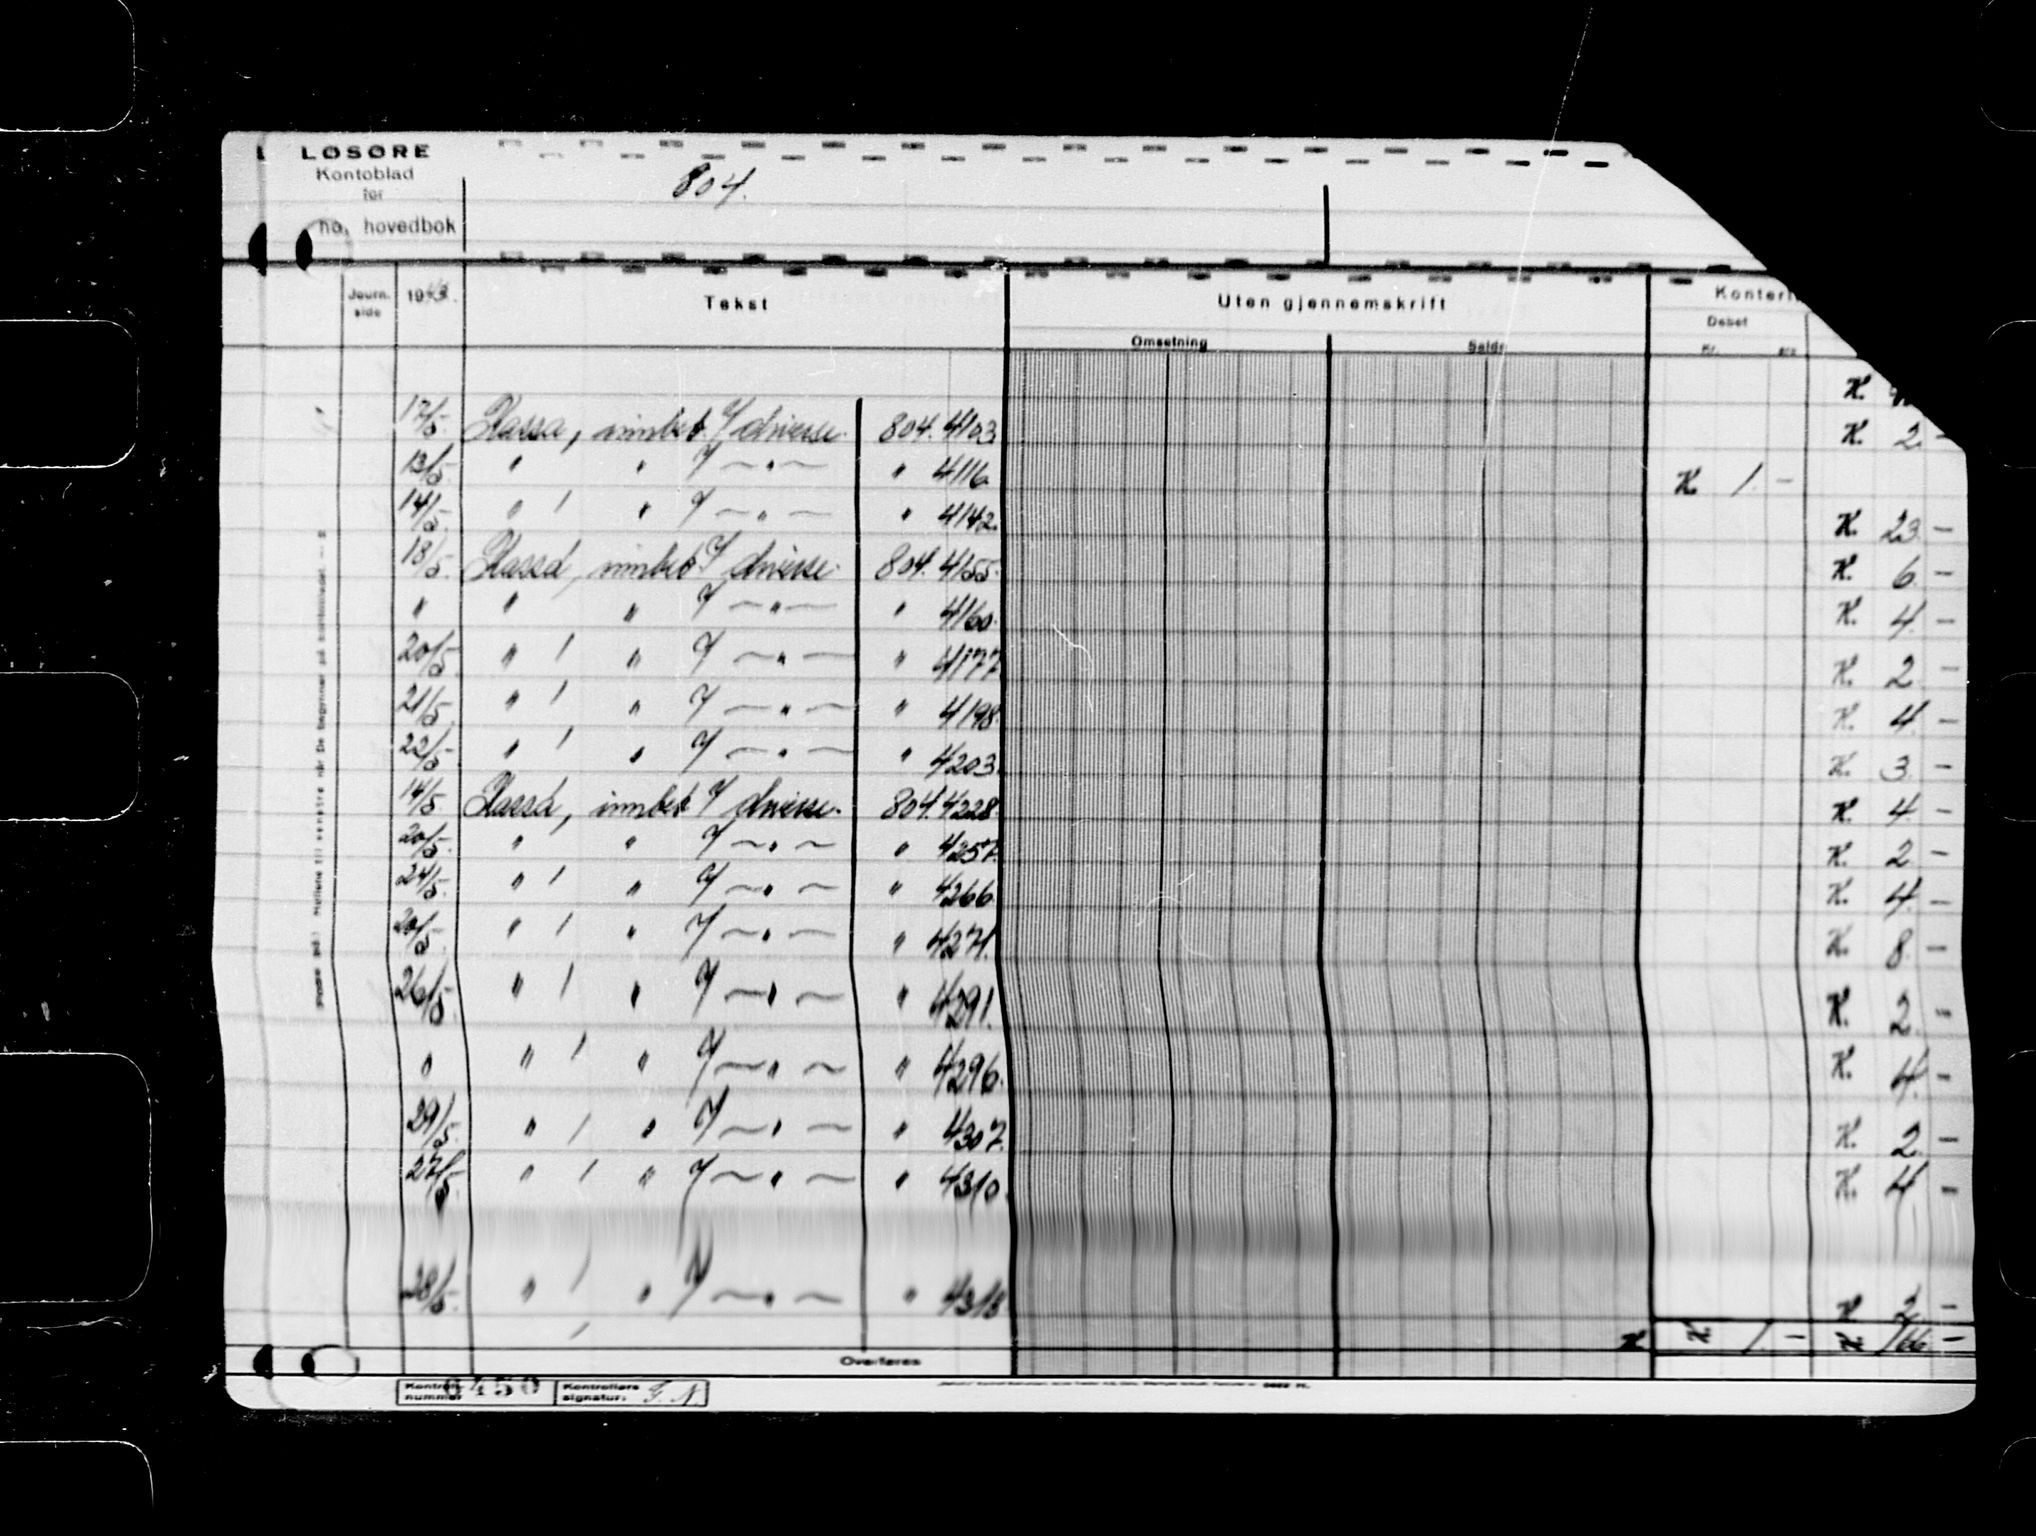 LØSØRE
Kontoblad
for
no. hovedbok
804.
Journ. side 1943. Tekst Uten gjennemskrift Omsetning Saldo Debet Kr. øre
K.
17/5. Kassa, innbet. f/ diverse. 804. 4103 K. 2. -
13/5. " " f/ — " — " 4116 K. 1. -
14/5. " " f/ — " — " 4142. K. 23 -
18/5. Kassa, innbet. f/ diverse. 804. 4155. K. 6. -
" " " f/ — " — " 4160. K. 4. -
20/5. " " f/ — " — " 4177. K. 2. -
21/5. " " f/ — " — " 4198. K. 4. -
22/5. " " f/ — " — " 4203. K. 3. -
14/5. Kassa, innbet. f/ diverse. 804. 4228. K. 4. -
20/5. " " f/ — " — " 4257. K. 2 -
24/5. " " f/ — " — " 4266. K. 4. -
20/5. " " f/ — " — " 4271. K. 8. -
26/5. " " f/ — " — " 4291. K. 2. -
" " " f/ — " — " 4296. K. 4. -
29/5. " " f/ — " — " 4307. K. 2. -
27/5. " " f/ — " — " 4310. K. 4 -
28/5. " " f/ — " — " 4318 K 2. -
K. K. 1. - K. 166 -
Overføres
Kontroll-nummer 6450 Kontrollørs signatur: